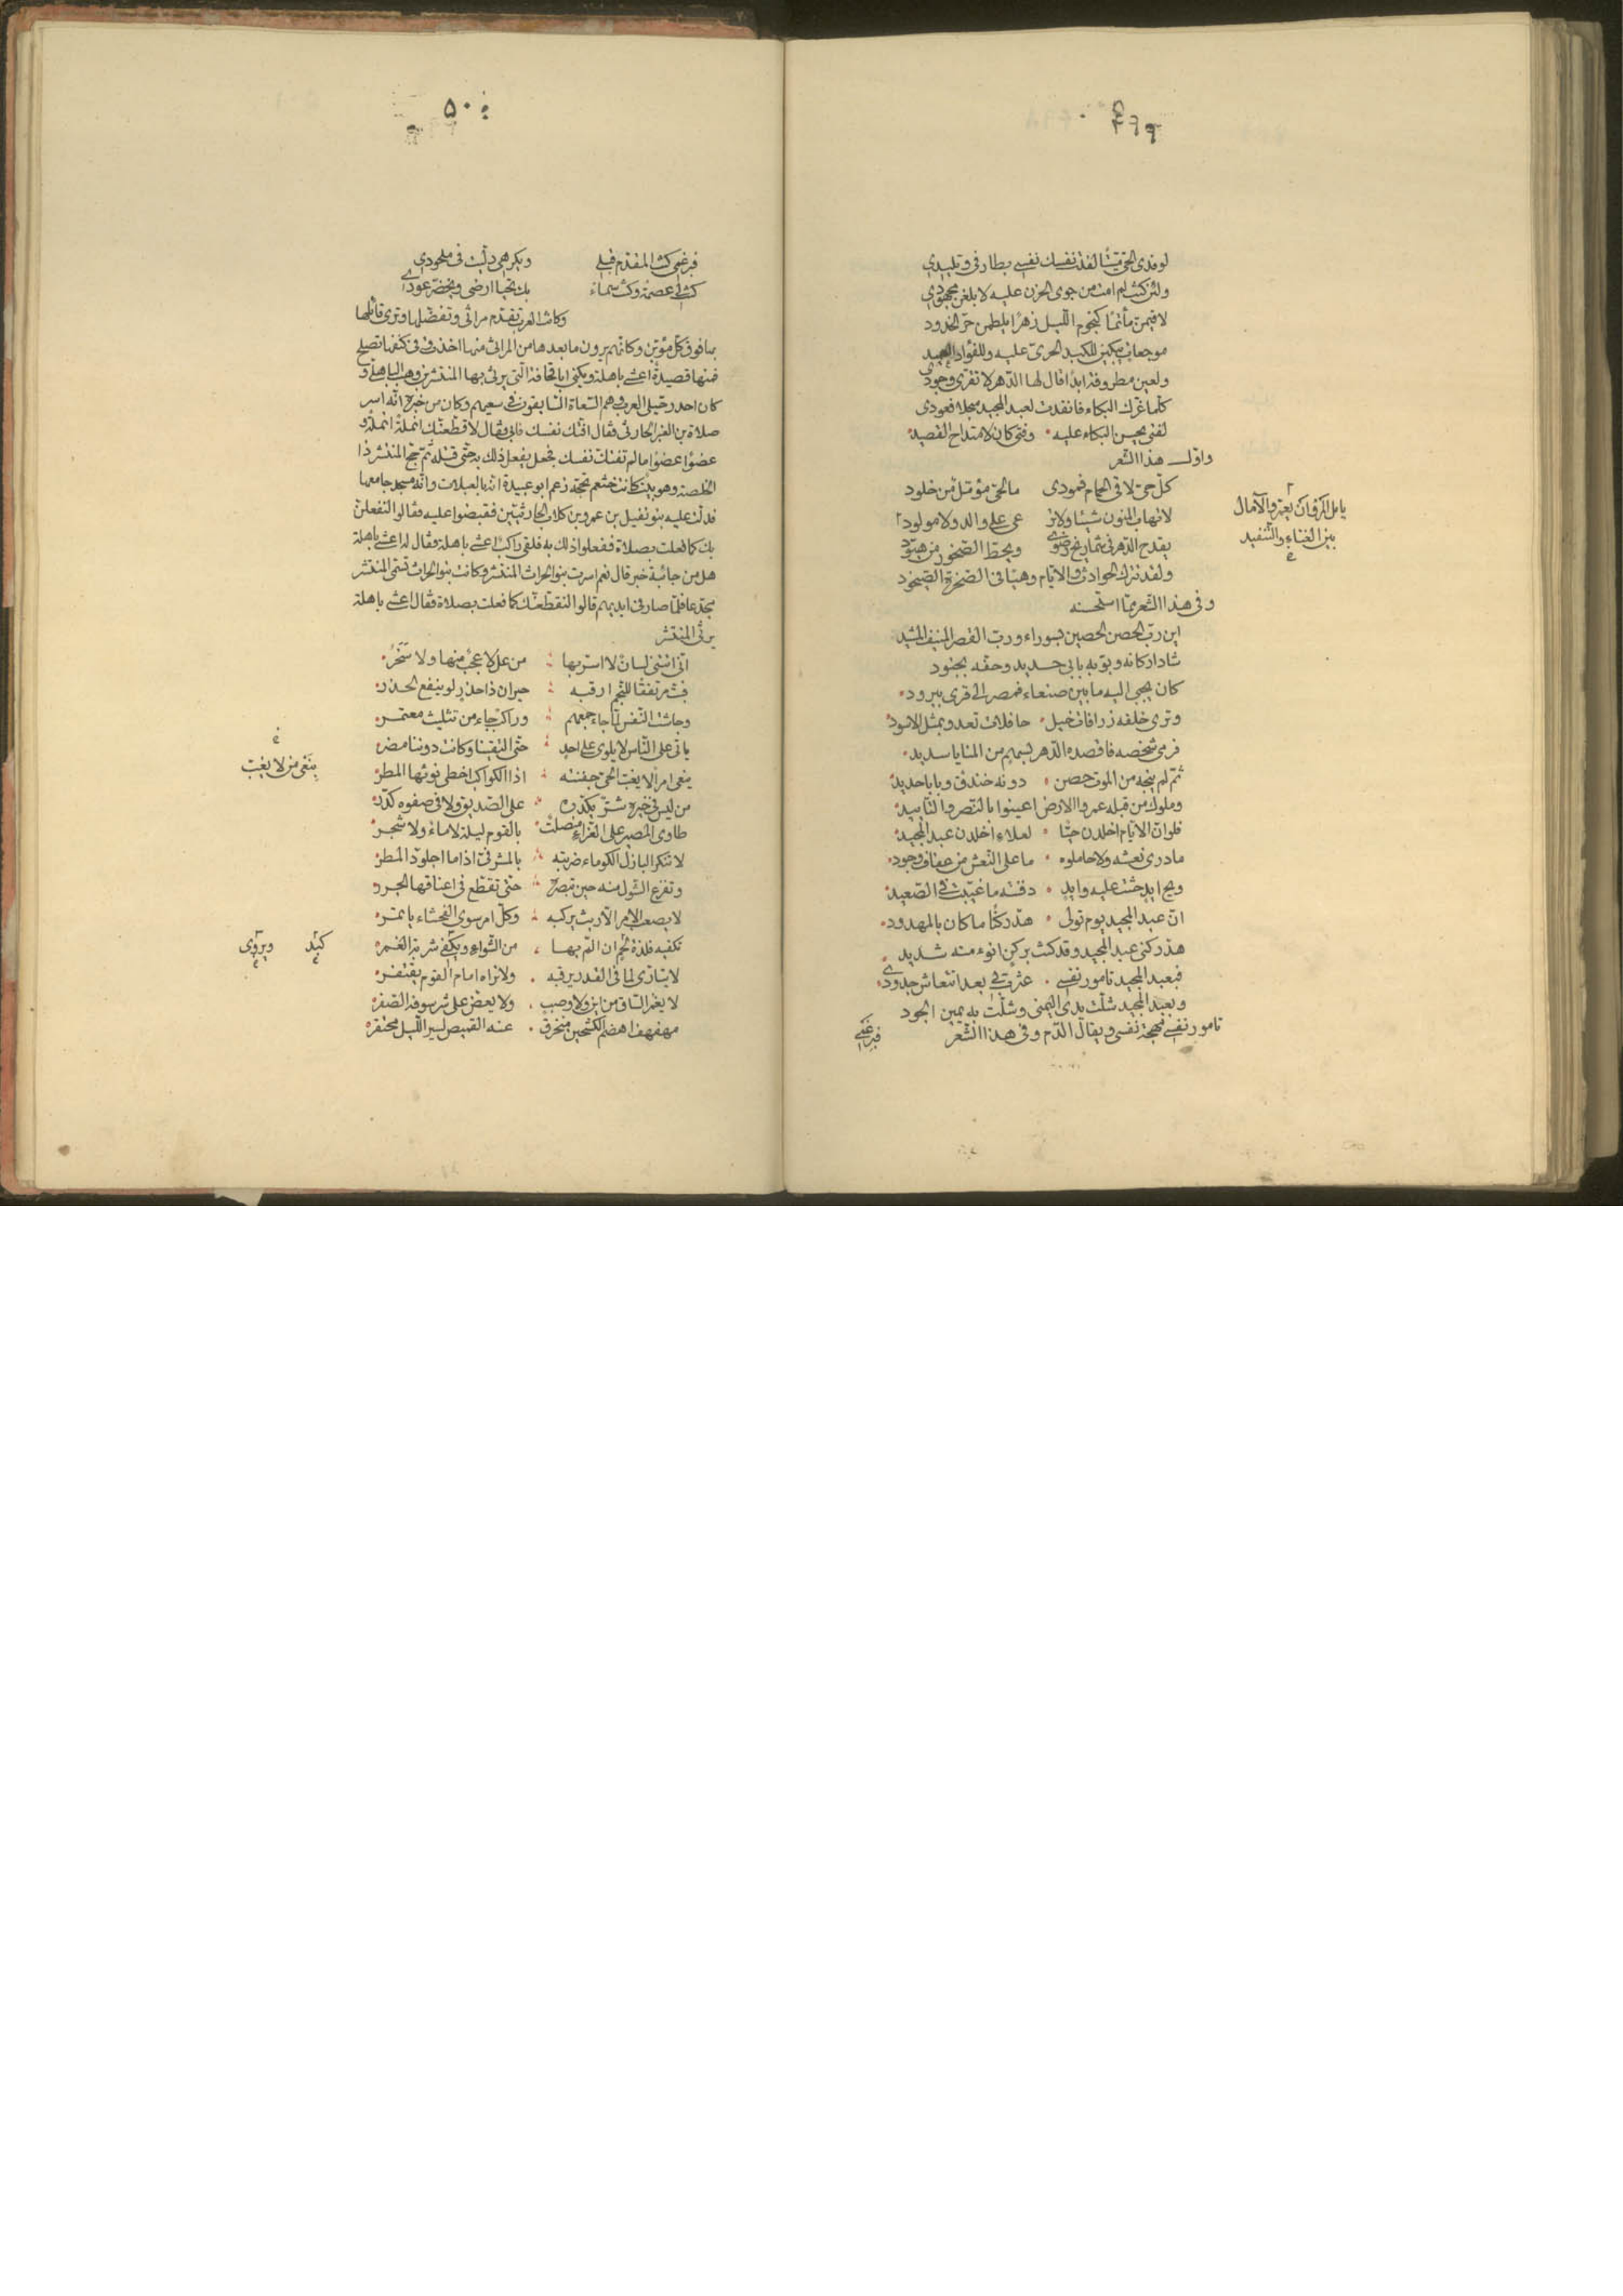 ٤٩٩
لو فدى الحىّ ميّتا لفدت نفسك نفسى بطارفى وتليدى
ولئن كنت لم امت من جوى الحزن عليه لابلغن مجهودى
لاقيمنّ مأتما كنجوم الليل زهرا يلطمن حرّ الخدود
موجعات يبكين للكبد الحرىّ عليه وللفؤاد العميد
ولعين مطروفة ابدا قال لها الدّهر لا تقرى وجودى
كلّما عزّك البكاء فانفدت لعبد المجيد سجلا فعودى
لفتى يحسن البكاء عليه وفتى كان لامتداح القصيد
واوّل هذا الشعر
كلّ حىّ لاقى الحمام فمودى ما لحىّ مؤمّل من خلود
لا تهاب المنون شيئا ولا ترعى على والد ولا مولود
يقدح الدّهر فى شماريخ رضوى ويحطّ الصّخور من هبّود
ولقد تترك الحوادث والايّام وهيا فى الصّخرة الصّيخود
وفى هذا الشّعر ممّا استحسنه
اين ربّ الحصن الحصين بسوراء وربّ القصر المنيف المشيد
شاد اركانه وبوّبه بابى حديد وحفّه بجنود
كان يجبى اليه ما بين صنعاء فمصر الى قرى يبرود
وترى خلفه زرافات خيل حافلات تعدو بمثل الاسود
فرمى شخصه فاقصده الدّهر بسهم من المنايا سديد
ثمّ لم ينجه من الموت حصن دونه خندق وبابا حديد
وملوك من قبله عمروا الارض اعينوا بالنّصر والتّأييد
فلو انّ الايّام اخلدن حيّا لعلاء اخلدن عبد المجيد
ما درى نعشه ولا حاملوه ما على النّعش من عفاف وجود
ويح ايد حثت عليه وايد دفنته ما غيّبت فى الصّعيد
انّ عبد المجيد يوم تولّى هدّ ركنا ما كان بالمهدود
هدّ ركنى عبد المجيد وقد كنت بركن انوء منه شديد
فبعبد المجيد تامور نفسى عثرت بى بعد انتعاش جدودى
وبعبد المجيد شلّت يدى اليمنى وشلّت به يمين الجود
تامور نفسى مهجة نفسى ويقال الدّم وفى هذا الشّعر
فبرغمى
بين الفناء والتّنفيد
٥٠٠
فبرغمى كنت المقدّم قبلى وبكرهى دلّيت فى ملحودى
كنت لى عصمة وكنت سماء بك تحيا ارضى ويخضرّ عودى
وكانت العرب تقدّم مراثى وتفضّلها وترى قائلها
بها فوق كلّ مؤبّن وكانهم يرون ما بعدها من المراثى منها اخذت وفى كنفها تصلح
فمنها قصيدة اعشى باهلة ويكنى ابا قحافة الّتى يرثى بها المنتشر بن وهب الباهلى و
كان احد رجلى العرب وهم السّعاة السّابقون فى سعيهم وكان من خبره انّه اسر
صلاة بن العنبر الحارثى فقال افتك نفسك فابى فقال لاقطّعنّك انملة انملة و
عضوا عضوا ما لم تفتك نفسك فجعل يفعل ذلك به حتّى قتله ثمّ حجّ المنتشر ذا
الخلصة وهو بيت كانت خثعم تحجّه زعم ابو عبيدة انّه بالعبلات وانّه مسجد جامعها
فدلّت عليه بنو نفيل بن عمرو بن كلاب الحارثيّين فقبضوا عليه فقالوا لنفعلنّ
بك كما فعلت بصلاة ففعلوا ذلك به فلقى راكب اعشى باهلة فقال له اعشى باهلة
هل من جائبة خبر قال نعم اسرت بنو الحراث المنتشر وكانت بنو الحراث تسمّى المنتشر
مجدّعا فلمّا صار فى ايديهم قالوا لنقطّعنّك كما فعلت بصلاة فقال اعشى باهلة
يرثى المنتشر
انّى اتتنى لسان لا اسرّ بها من عل لا عجب منها ولا سخر
فبتّ مرتفقا للنّجم ارقبه حيران ذا حذر لو ينفع الحذر
وجاشت النّفس لمّا جاء جمعهم وراكب جاء من تثليث معتمر
ياتى على النّاس لا يلوى على احد حتّى التقينا وكانت دوننا مضر
ينعى امرا لا يغبّ الحىّ جفنته اذا الكواكب اخطى نوئها المطر
من ليس فى خيره شرّ يكدّره على الصّديق ولا فى صفوه كدر
طاوى المصير على العزّاء منصلت بالقوم ليلة لا ماء ولا شجر
لا تنكر البازل الكوماء ضربته بالمشرفىّ اذا ما اجلوّذ المطر
وتفزع الشّول منه حين تبصره حتّى تقطّع فى اعناقها الجرر
لا يصعب الامر الّا ريث يركبه وكلّ امر سوى الفحشاء ياتمر
تكفيه فلذة لحم ان المّ بها من الشّواء ويكفى شربه الغمر
لا يتارّى لما فى القدر يرقبه ولا تراه امام القوم يقتفر
لا يغمز السّاق من اين ولا وصب ولا يعضّ على شرسوفه الصّفر
مهفهف اهضم الكشحين منخرق عنه القميص لسير اللّيل محتقر
ينعى من لا يغبّ
كبد ويروى